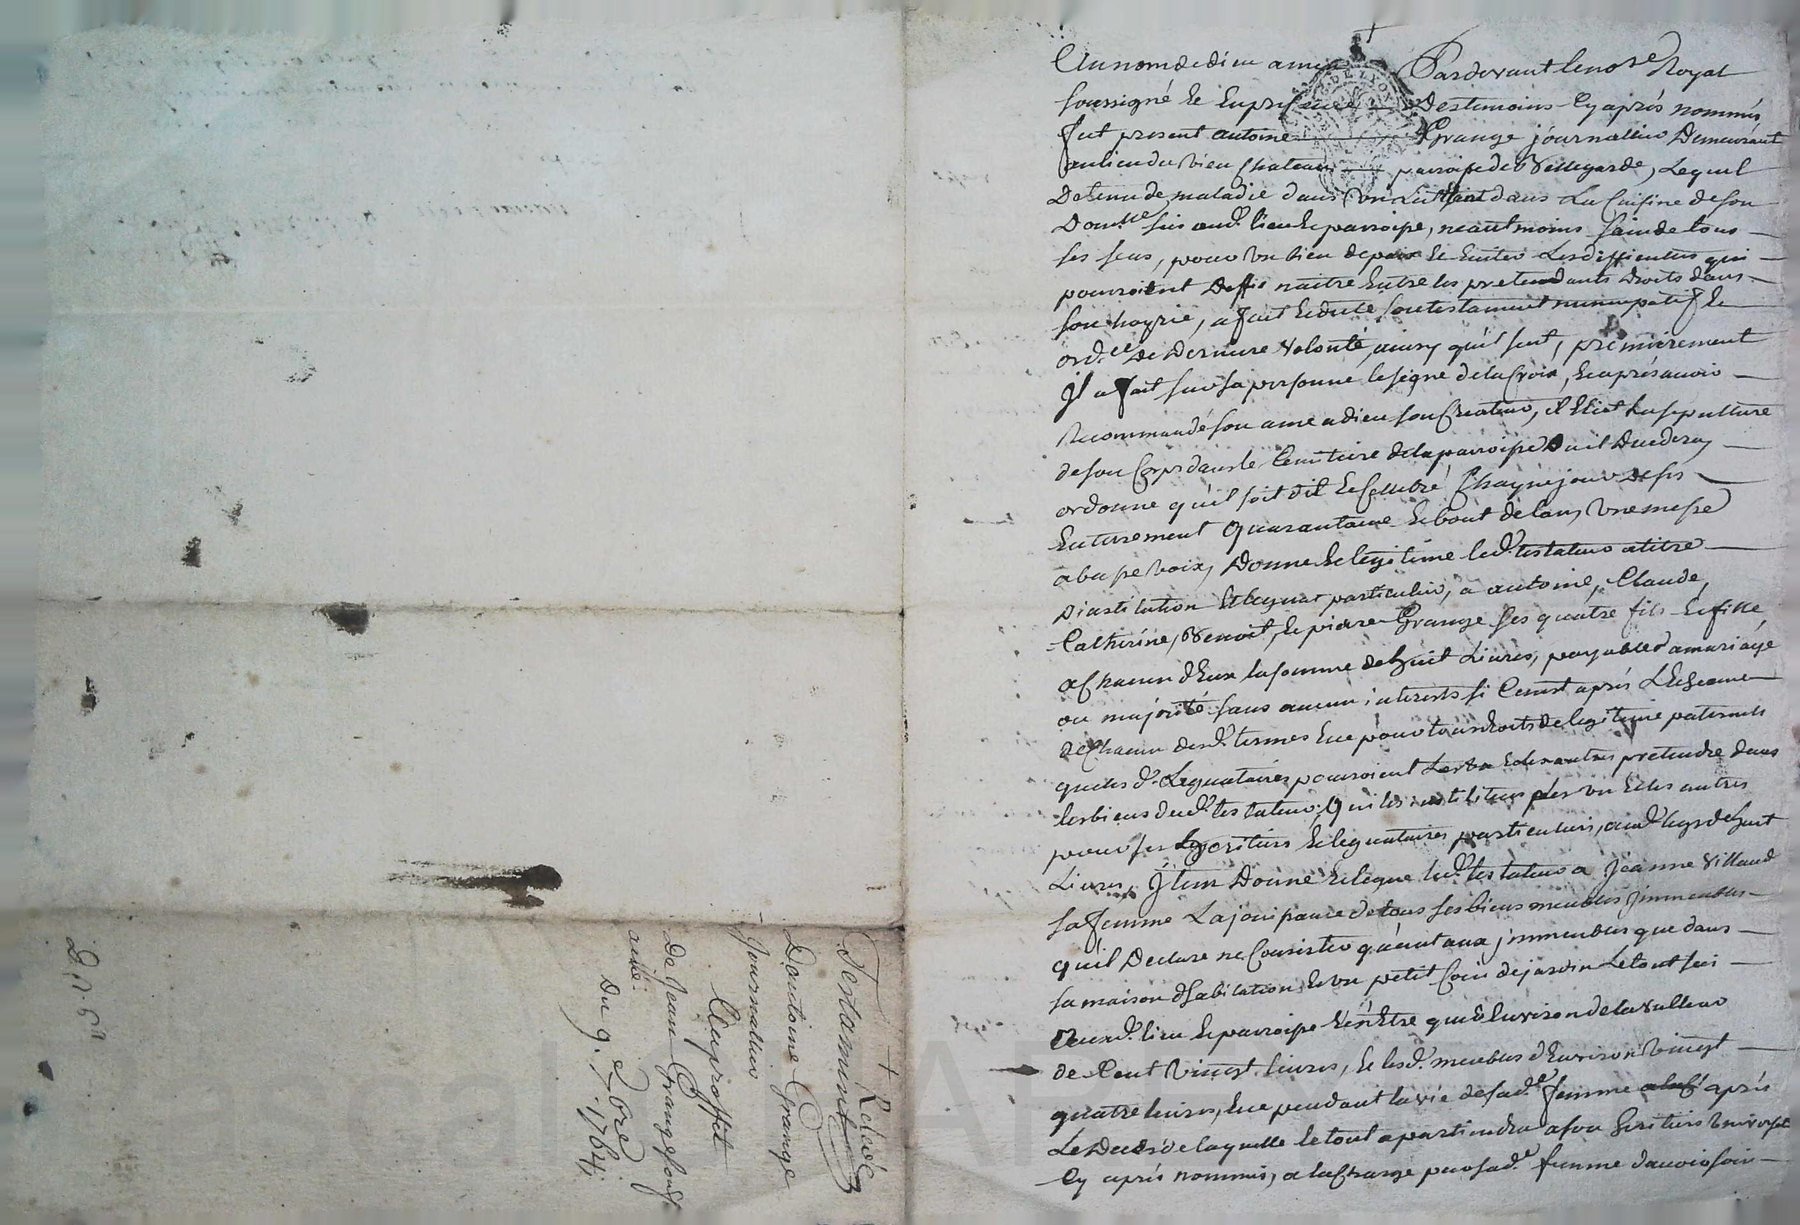 Au nom de dieu amen Pardevant le no.re Royal
soussigné et en presence Des temoins cy après nommés
fut present antoine Grange journallier Demeurant
au lieu du vieu chateau paroisse de Bellegarde, Lequel
Detenu de maladie dans un Lit dans La Cuisine de son
Dom.lle sis aud. lieu et parroisse, neantmoins sain de tous
ses sens, pour un bien de paix et eviter Les difficultés qui
pourroient naitre entre les pretendants droits dans
son hoyrie, a fait et dicté son testament nuncupatif et
ord.ce De Derniere volonté, ainsy qu'il suit, premierement
Il a fait sur sa personne le signe de la Croix, et après avoir
recommandé son ame a dieu son Createur, il Elict La sepulture
de son Corps dans le Cemitiere de la parroisse Duil Decedera,
ordonne qu'il soit dit et celebré Chaque jour de ses
Enterement Quarantaine et bout de l'an, une messe
a basse voix, Donne et legitime led. testateur a titre
D'institution et leguat particulier, a antoine, Claude,
Catherine, Benoit, et pierre Grange ses quatre fils et fille
a Chacun d'Eux la somme de huit Livres, payables a mariage
ou majorité sans aucun interests si Cenest après L'Echeance
de Chacun desd. termes et ce pour tous droits de legitime paternels
que les d. Leguataires pourroient Les un et les autres pretendre dans
les biens dud. testateur. Qui les institue les un et les autres
pour ses heritiers et leguataires particuliers, aud. legs de huit
Livres, Item Donne et legue led. testateur a Jeanne Villaud
sa femme La jouissance de tous ses biens meubles immeubles
qu'il Declare ne Consister quant aux immeubles que dans
sa maison d'habitation, et un petit Coin de jardin Le tout sis
aud. lieu et parroisse et n'Etre que d'Environ de la valleur
de Cent vingt livres, et lesd. meubles d'Environ vingt
quatre livres, et ce pendant la vie de sad.e femme après
Le Deces de laquelle le tout apartiendra a son heritier universel
Cy après nommé, a la Charge par sad.e femme d'avoir soin
+ Rédué
Testament
D'antoine Grange
Journallier
Au proffit
De Jean Grange son fils
Du 9. 7bre 1764.